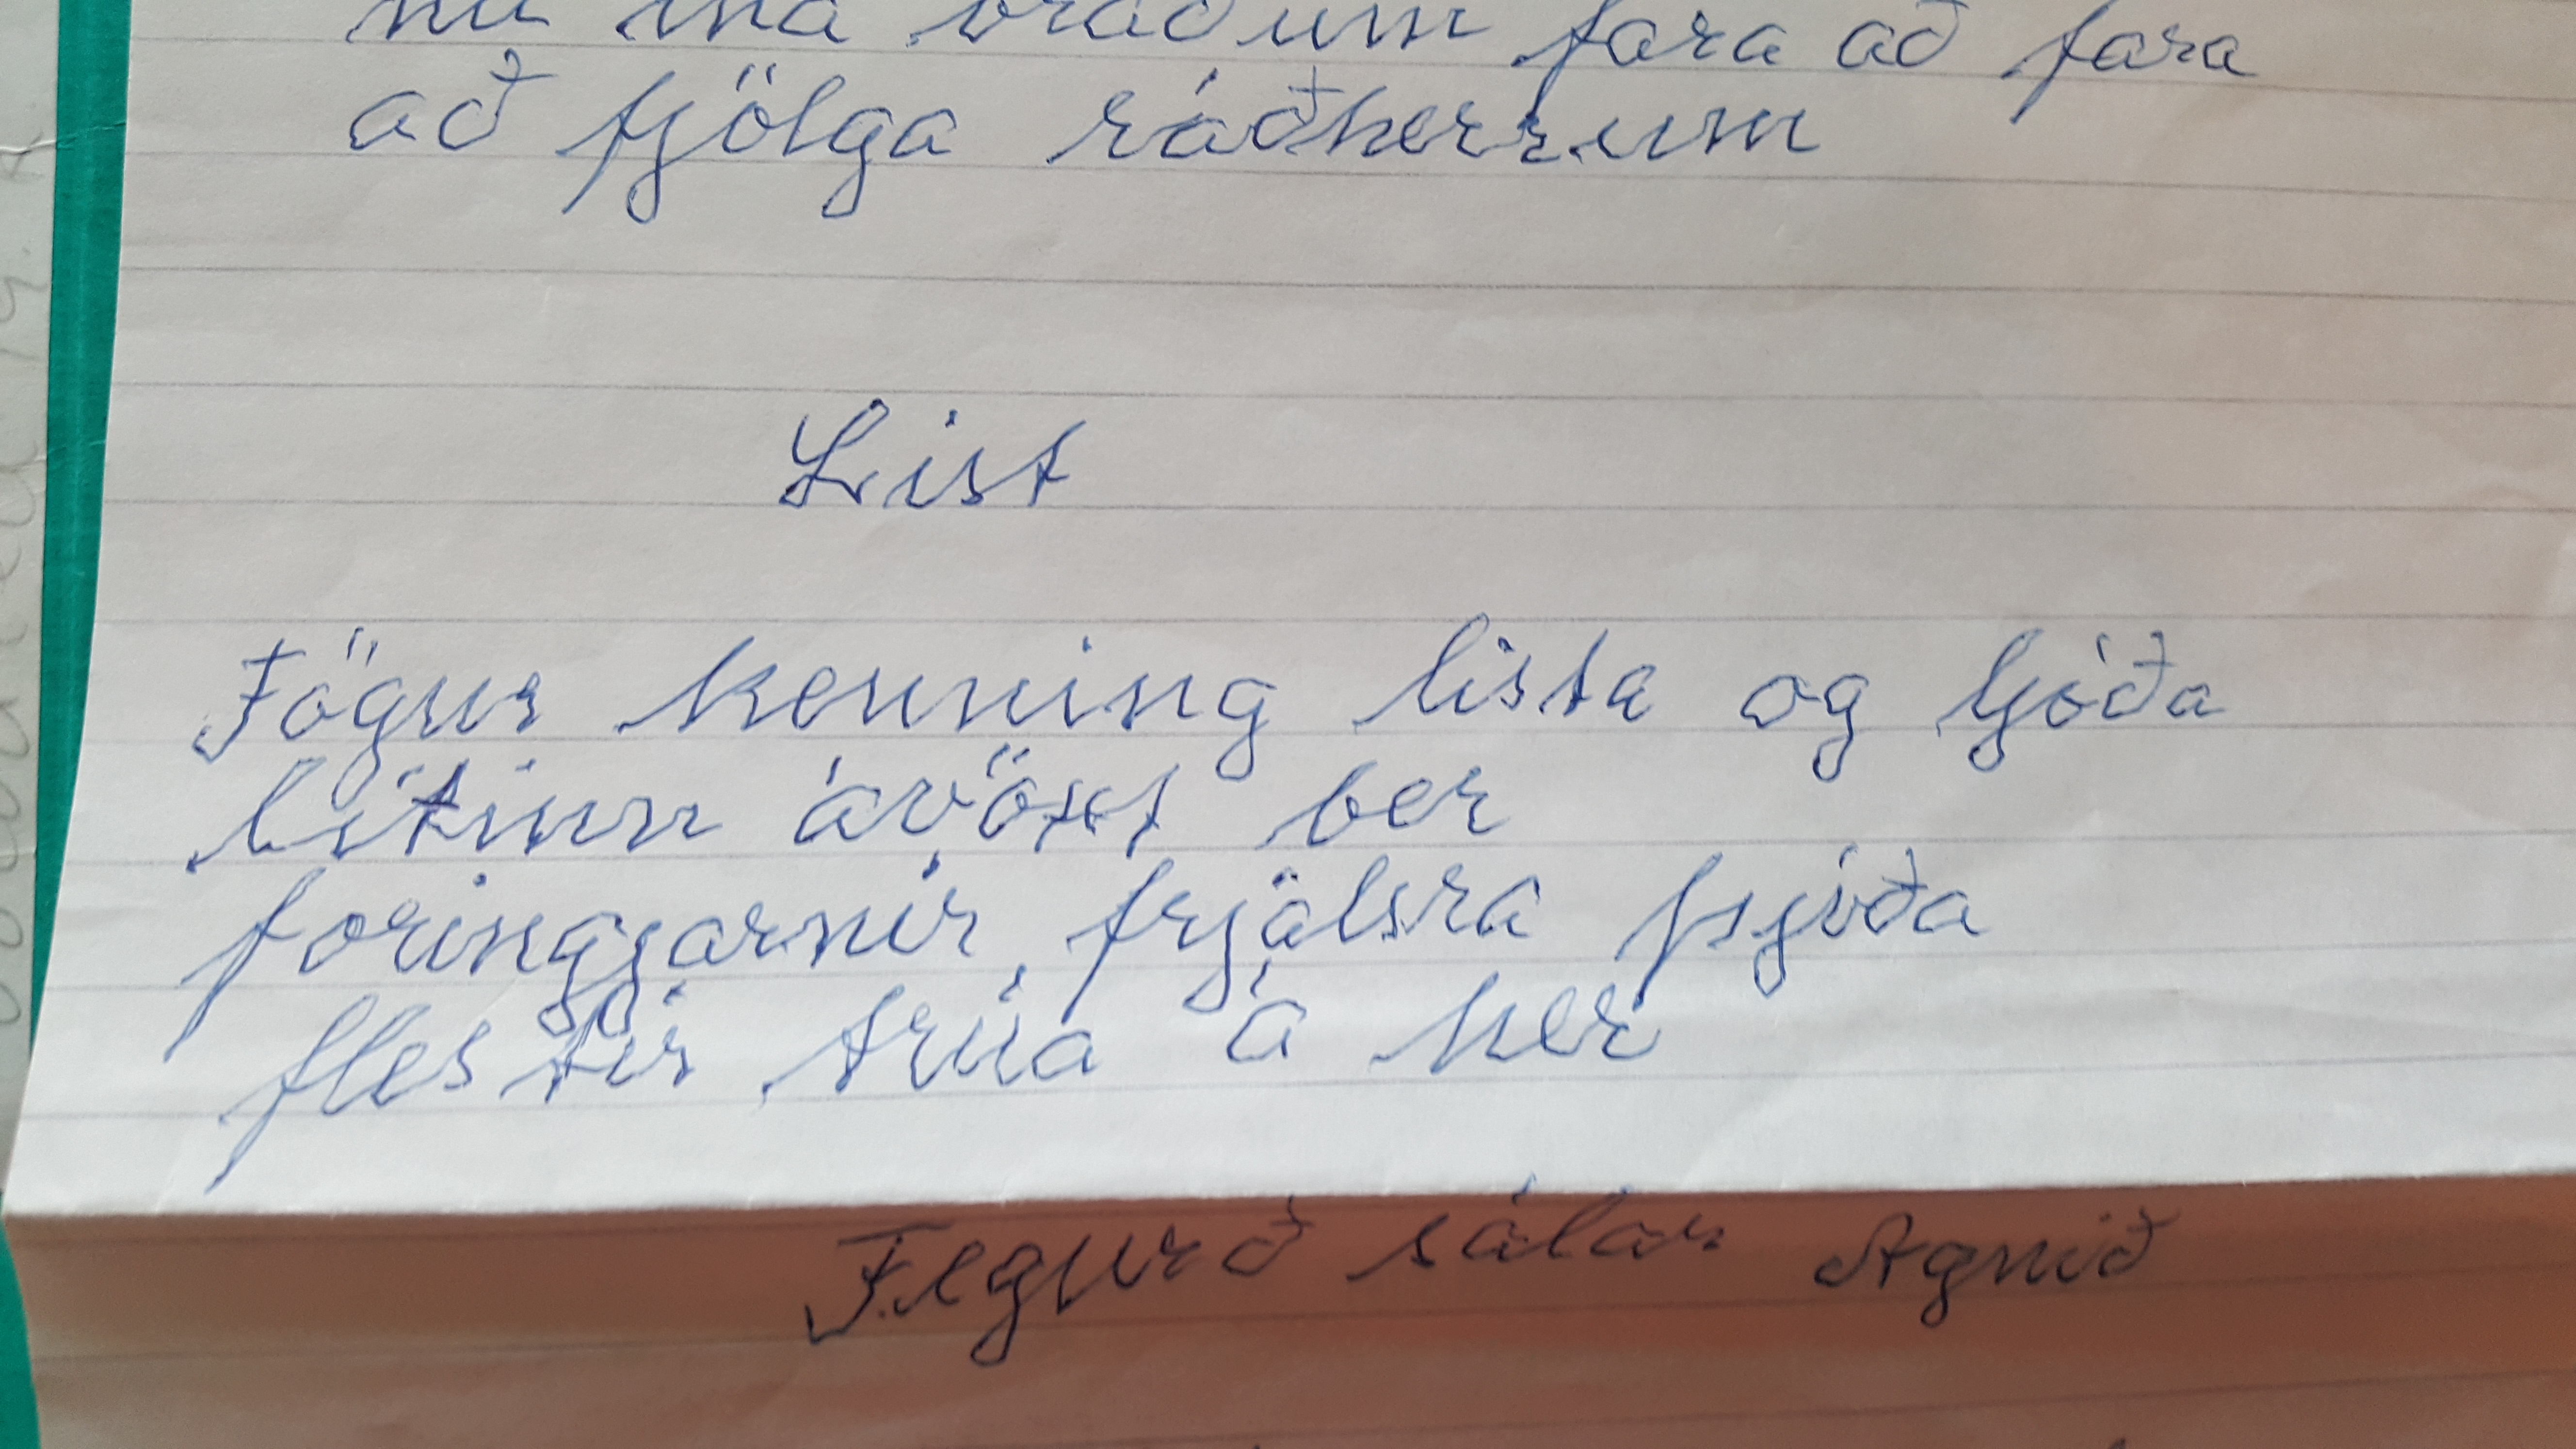 nú má bráðum fara að fara
að fjölga ráðherrum
List
Fögur kenning lista og ljóða
lítinn ávöxt ber
foringjarnir frjálsra þjóða
flestir trúa á her
Fegurð sálar Agnið